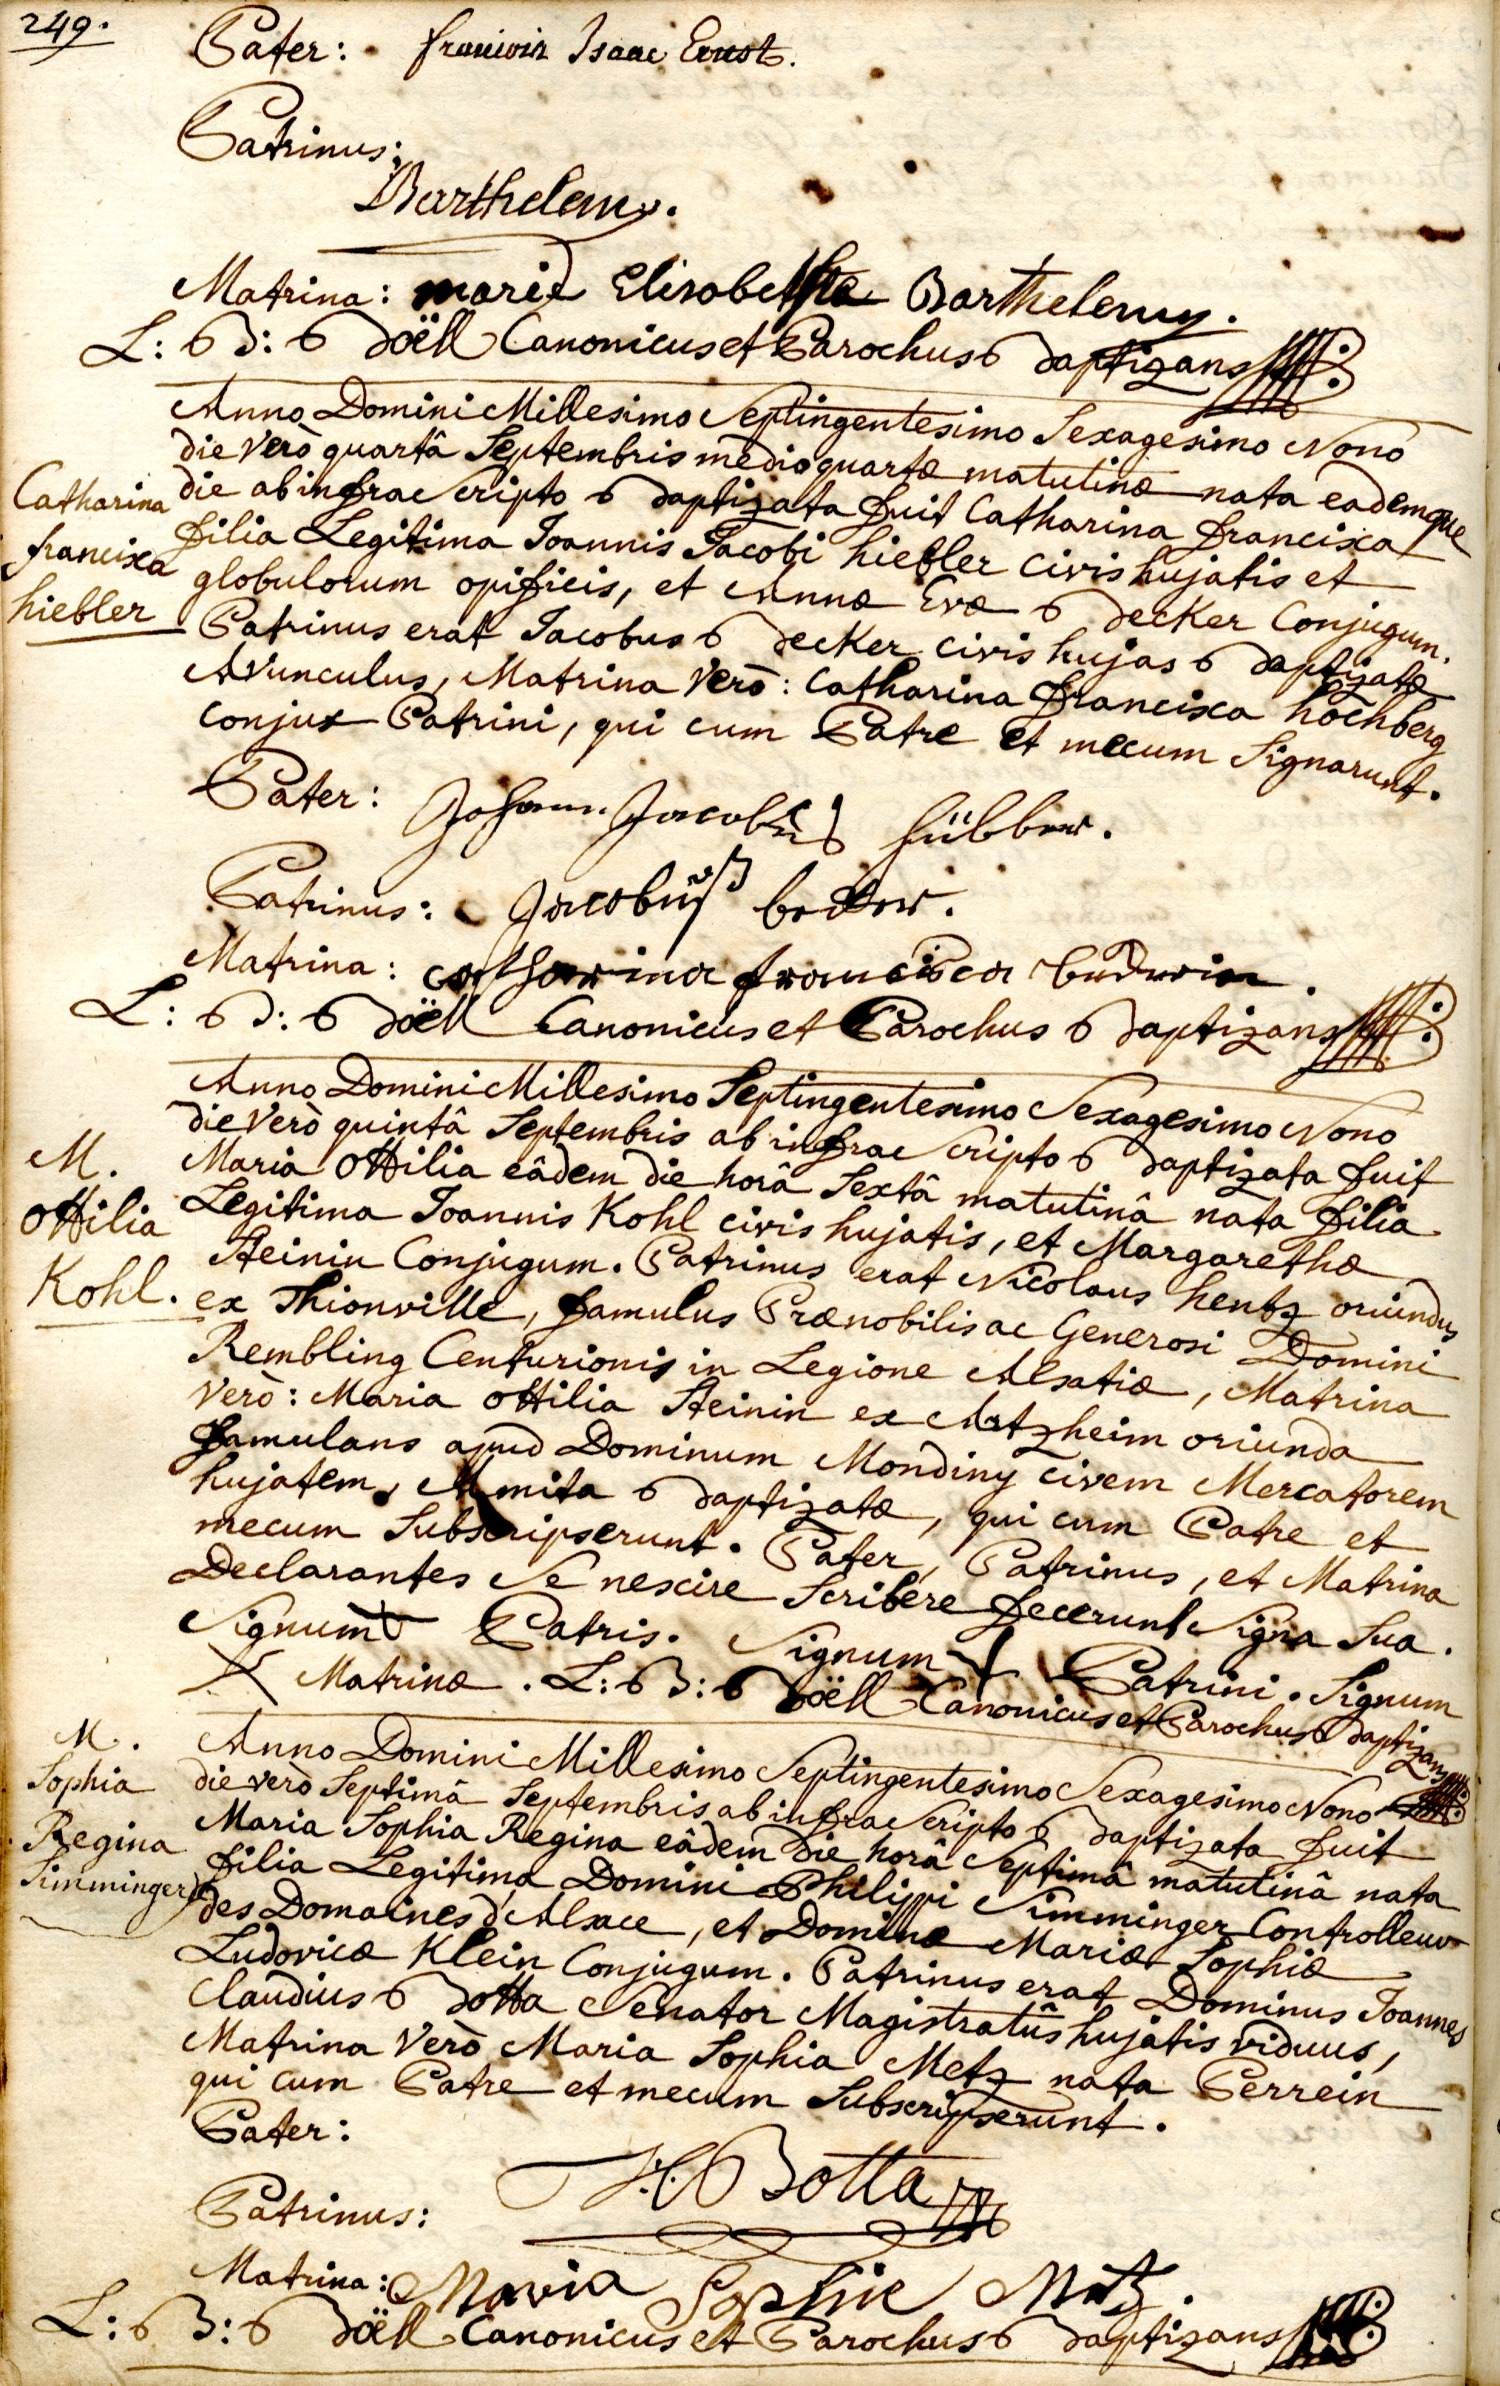 249.
Pater: francois Isaac Ernst.
Patrinus:
Barthelemy.
Matrina: marie Elisabethe Barthelemy.
L: B: Boëll Canonicus et Parochus Baptizans
Anno Domini Millesimo Septingentesimo Sexagesimo Nono
die verò quartâ Septembris medio quartæ matutinæ nata eademque
die ab infrascripto Baptizata fuit Catharina francisca
filia Legitima Joannis Jacobi hiebler civis hujatis et
globulorum opificis, et Annæ Evæ Becker Conjugum.
Patrinus erat Jacobus Becker civis hujas Baptizatæ
Avunculus, Matrina verò: Catharina francisca höchberg
conjux Patrini, qui cum Patre et mecum Signarunt.
Catharina
francisca
hiebler
Pater: Johann Jacobus hübler.
Patrinus: Jacobus becker.
Matrina: catharina francisca
L: B: Boëll Canonicus et Parochus Baptizans
Anno Domini Millesimo Septingentesimo Sexagesimo Nono
die verò quintâ Septembris ab infrascripto Baptizata fuit
Maria Ottilia eâdem die horâ Sextâ matutinâ nata filia
Legitima Joannis Kohl civis hujatis, et Margarethæ
Steinin Conjugum. Patrinus erat Nicolaus hentz oriundus
ex Thionville, famulus Prænobilis ac Generosi Domini
Rembling Centurionis in Legione Alsatiæ, Matrina
verò: Maria Ottilia Steinin ex Artzheim oriunda
famulans apud Dominum Mondiny civem Mercatorem
hujatem, Amita Baptizatæ, qui cum Patre et
mecum Subscripserunt. Pater, Patrinus, et Matrina
Declarantes Se nescire Scribere fecerunt Signa Sua.
Signum Patris. Signum Patrini. Signum
X Matrinæ. L: B: Boëll Canonicus et Parochus Baptizans
M.
Ottilia
Kohl.
Anno Domini Millesimo Septingentesimo Sexagesimo Nono
die verò Septimâ Septembris ab infrascripto Baptizata fuit
Maria Sophia Regina eâdem die horâ Septimâ matutinâ nata
filia Legitima Domini Philippi Simminger Controlleur
des Domaines d'Alsace, et Dominæ Mariæ Sophiæ
Ludovicæ Klein Conjugum. Patrinus erat Dominus Joannes
Claudius Botta Senator Magistratûs hujatis viduus,
Matrina verò Maria Sophia Metz nata Perrein
qui cum Patre et mecum Subscripserunt.
M.
Sophia
Regina
Simminger
Pater:
Patrinus: Botta
Matrina: Maria Sophie Metz.
L: B: Boëll Canonicus et Parochus Baptizans